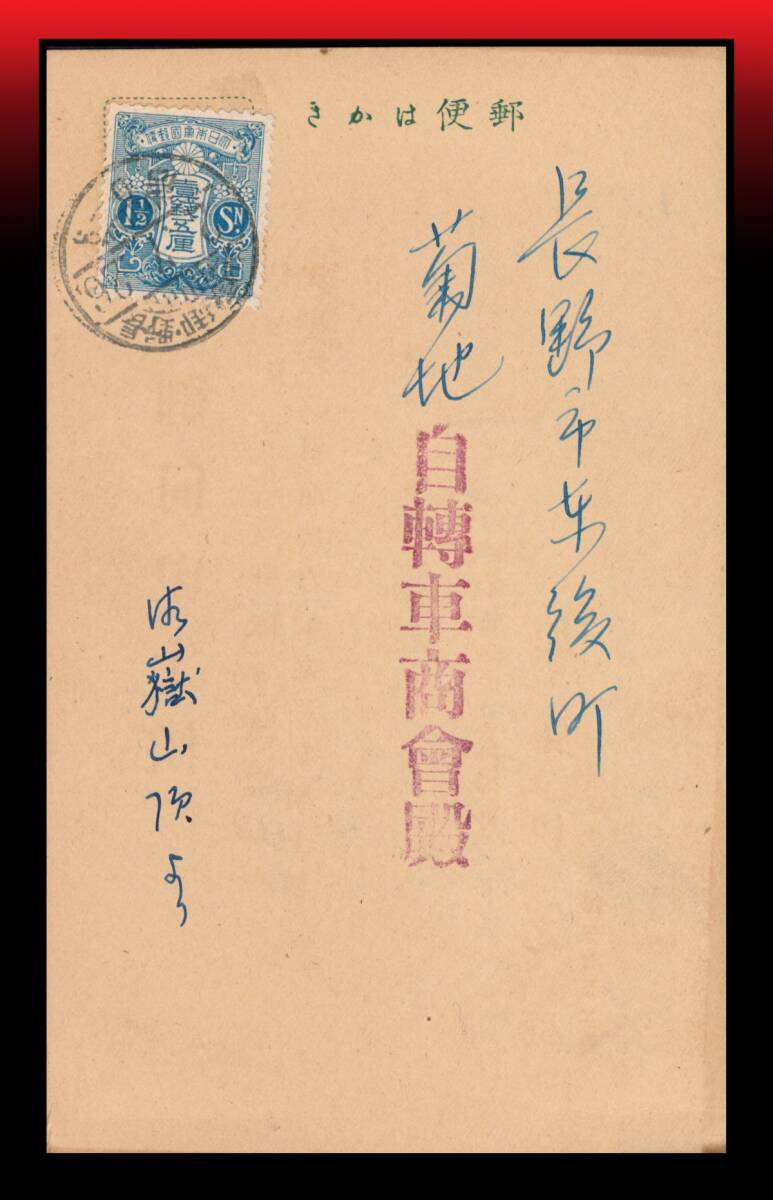 郵便はかき
大日本帝國郵便
壹錢五厘
1½
SN
長野
長野市東後町
菊地
自轉車商會殿
御嶽山頂より